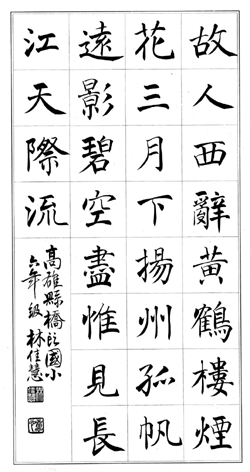 故人西辭黃鶴樓煙
花三月下揚州孤帆
遠影碧空盡惟見長
江天際流
高雄縣橋頭國小
六年級 林佳慧